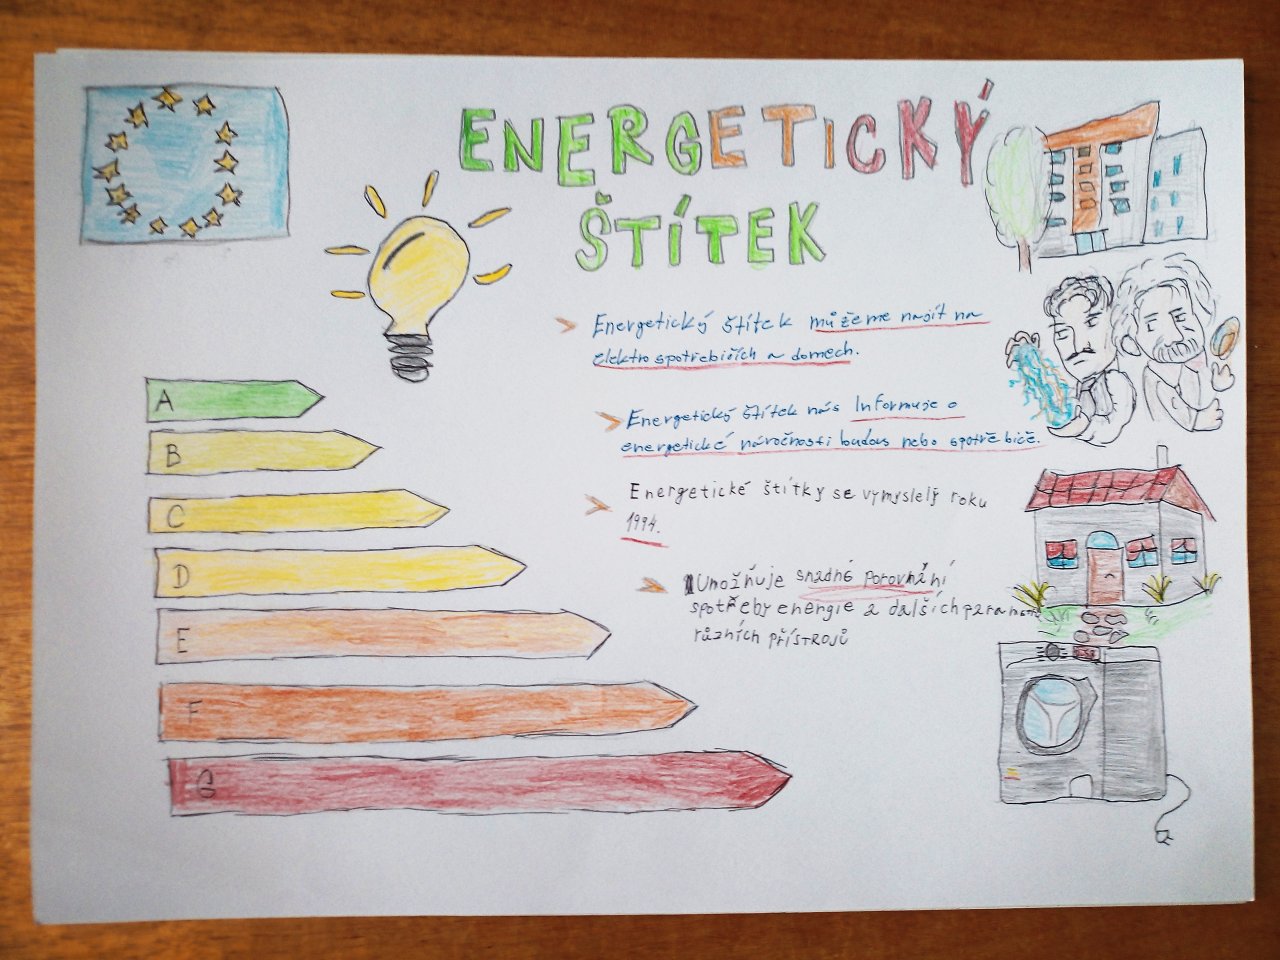 ENERGETICKÝ
ŠTÍTEK
Energetický štítek můžeme najít na
elektrospotřebičích a domech.
Energetický štítek nás Informuje o
energetické náročnosti budov nebo spotřebiče.
Energetické štítky se vymyslelý roku
1994.
Umožňuje snadné porovnání
spotřeby energie a dalších parametrů
různích přístrojů
A
B
C
D
E
F
G